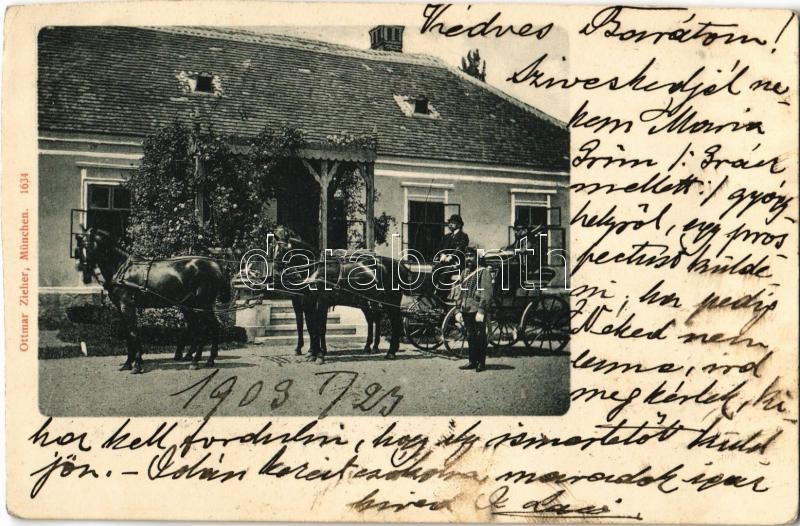 Kedves Barátom!
Sziveskedjél ne-
kem Maria
Grün /: Grácz
mellett :/ gyógy
helyről, egy pros
pectust külde
ni, ha pedig
Néked nem
lenne, ird
meg kérlek, ki-
hoz kell fordulni, hogy egy ismertetőt küld
jön. –
maradok igaz
hived
1903 23
Ottmar Zieher, München. 1634
darabanth